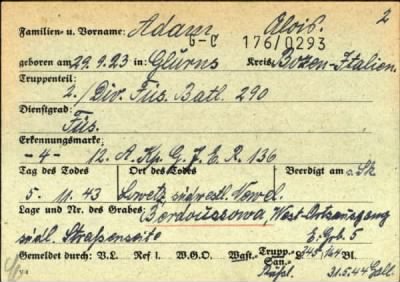 2
Familien- u. Vorname: Adam Alois.
G-C 176/0293
geboren am 29.9.23 in: Glurns Kreis: Bozen-Italien.
Truppenteil:
2./Div. Füs. Batl. 290
Dienstgrad:
Füs.
Erkennungsmarke:
-4- 12. A. Kp. G. J. E. R. 136
Tag des Todes Ort des Todes Beerdigt am
5. 11. 43 Lowetz südwestl. Newel.
Lage und Nr. des Grabes: Bordoussowa, West-Ortsausgang
südl. Straßenseite E. Grb. 5
Gemeldet durch: V.L. Ref I. W.G.O. Wast. Trupp.
San.
31.5.44